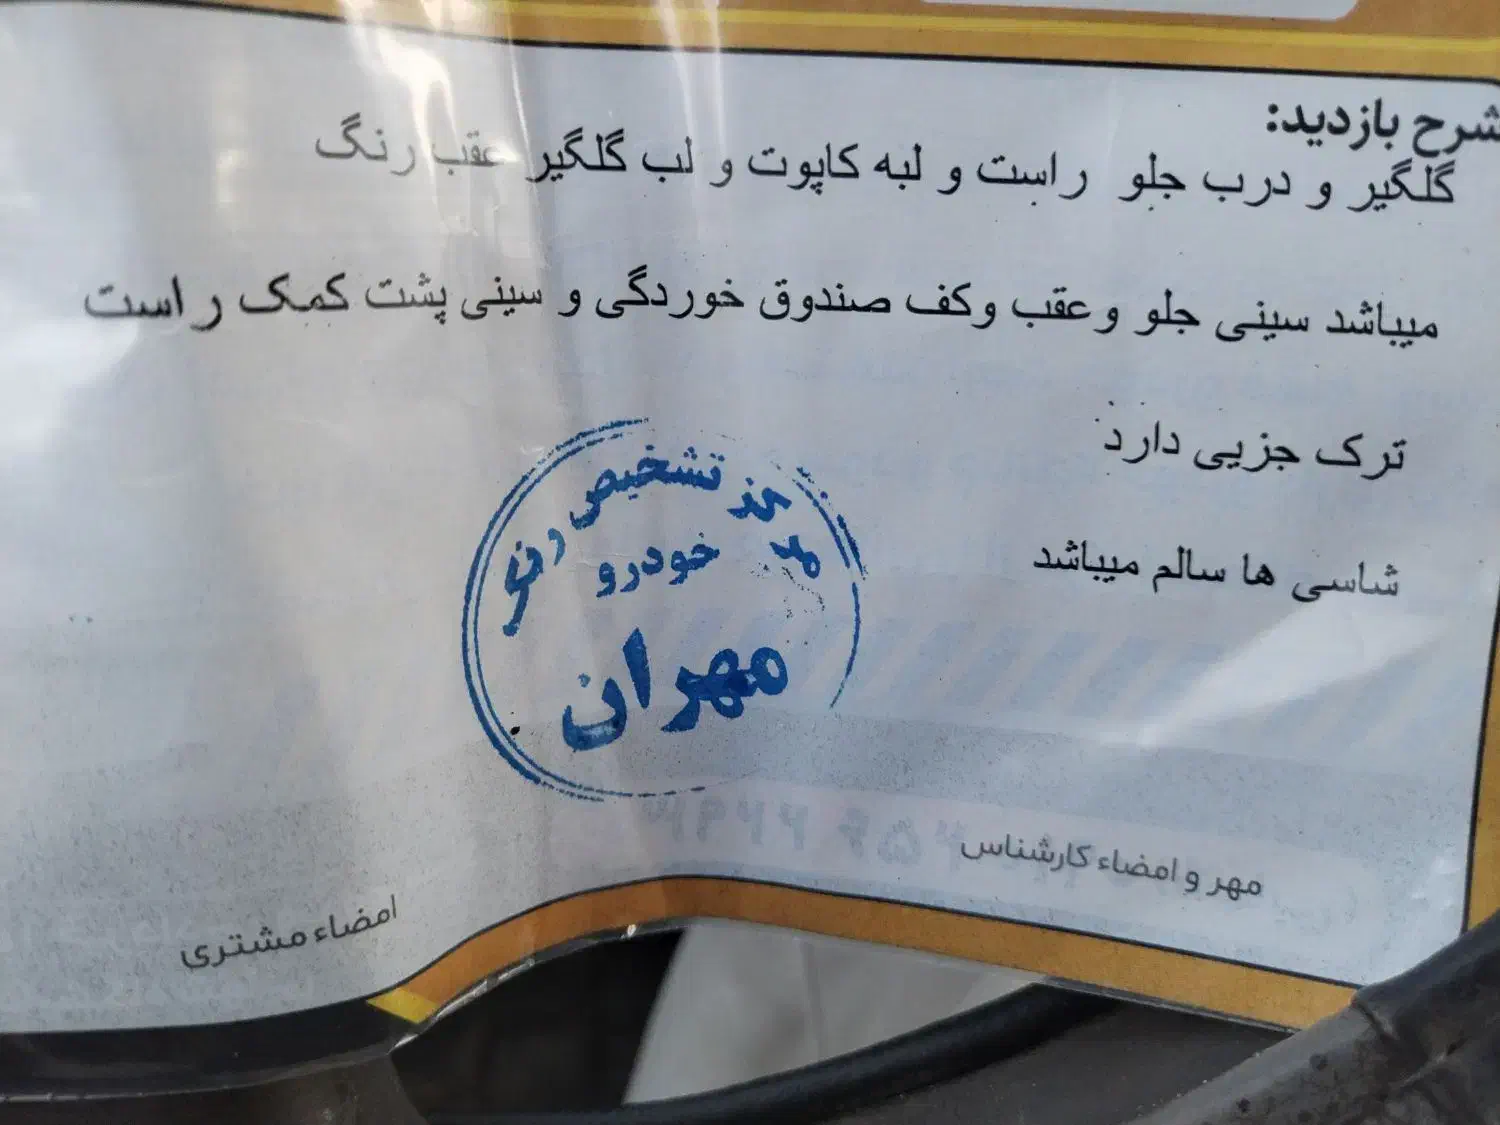 شرح بازدید:
گلگیر و درب جلو راست و لبه کاپوت و لب گلگیر عقب رنگ
میباشد سینی جلو وعقب وکف صندوق خوردگی و سینی پشت کمک راست
ترک جزیی دارد
شاسی ها سالم میباشد
مرکز تشخیص رنگ
خودرو
مهران
مهر و امضاء کارشناس
امضاء مشتری